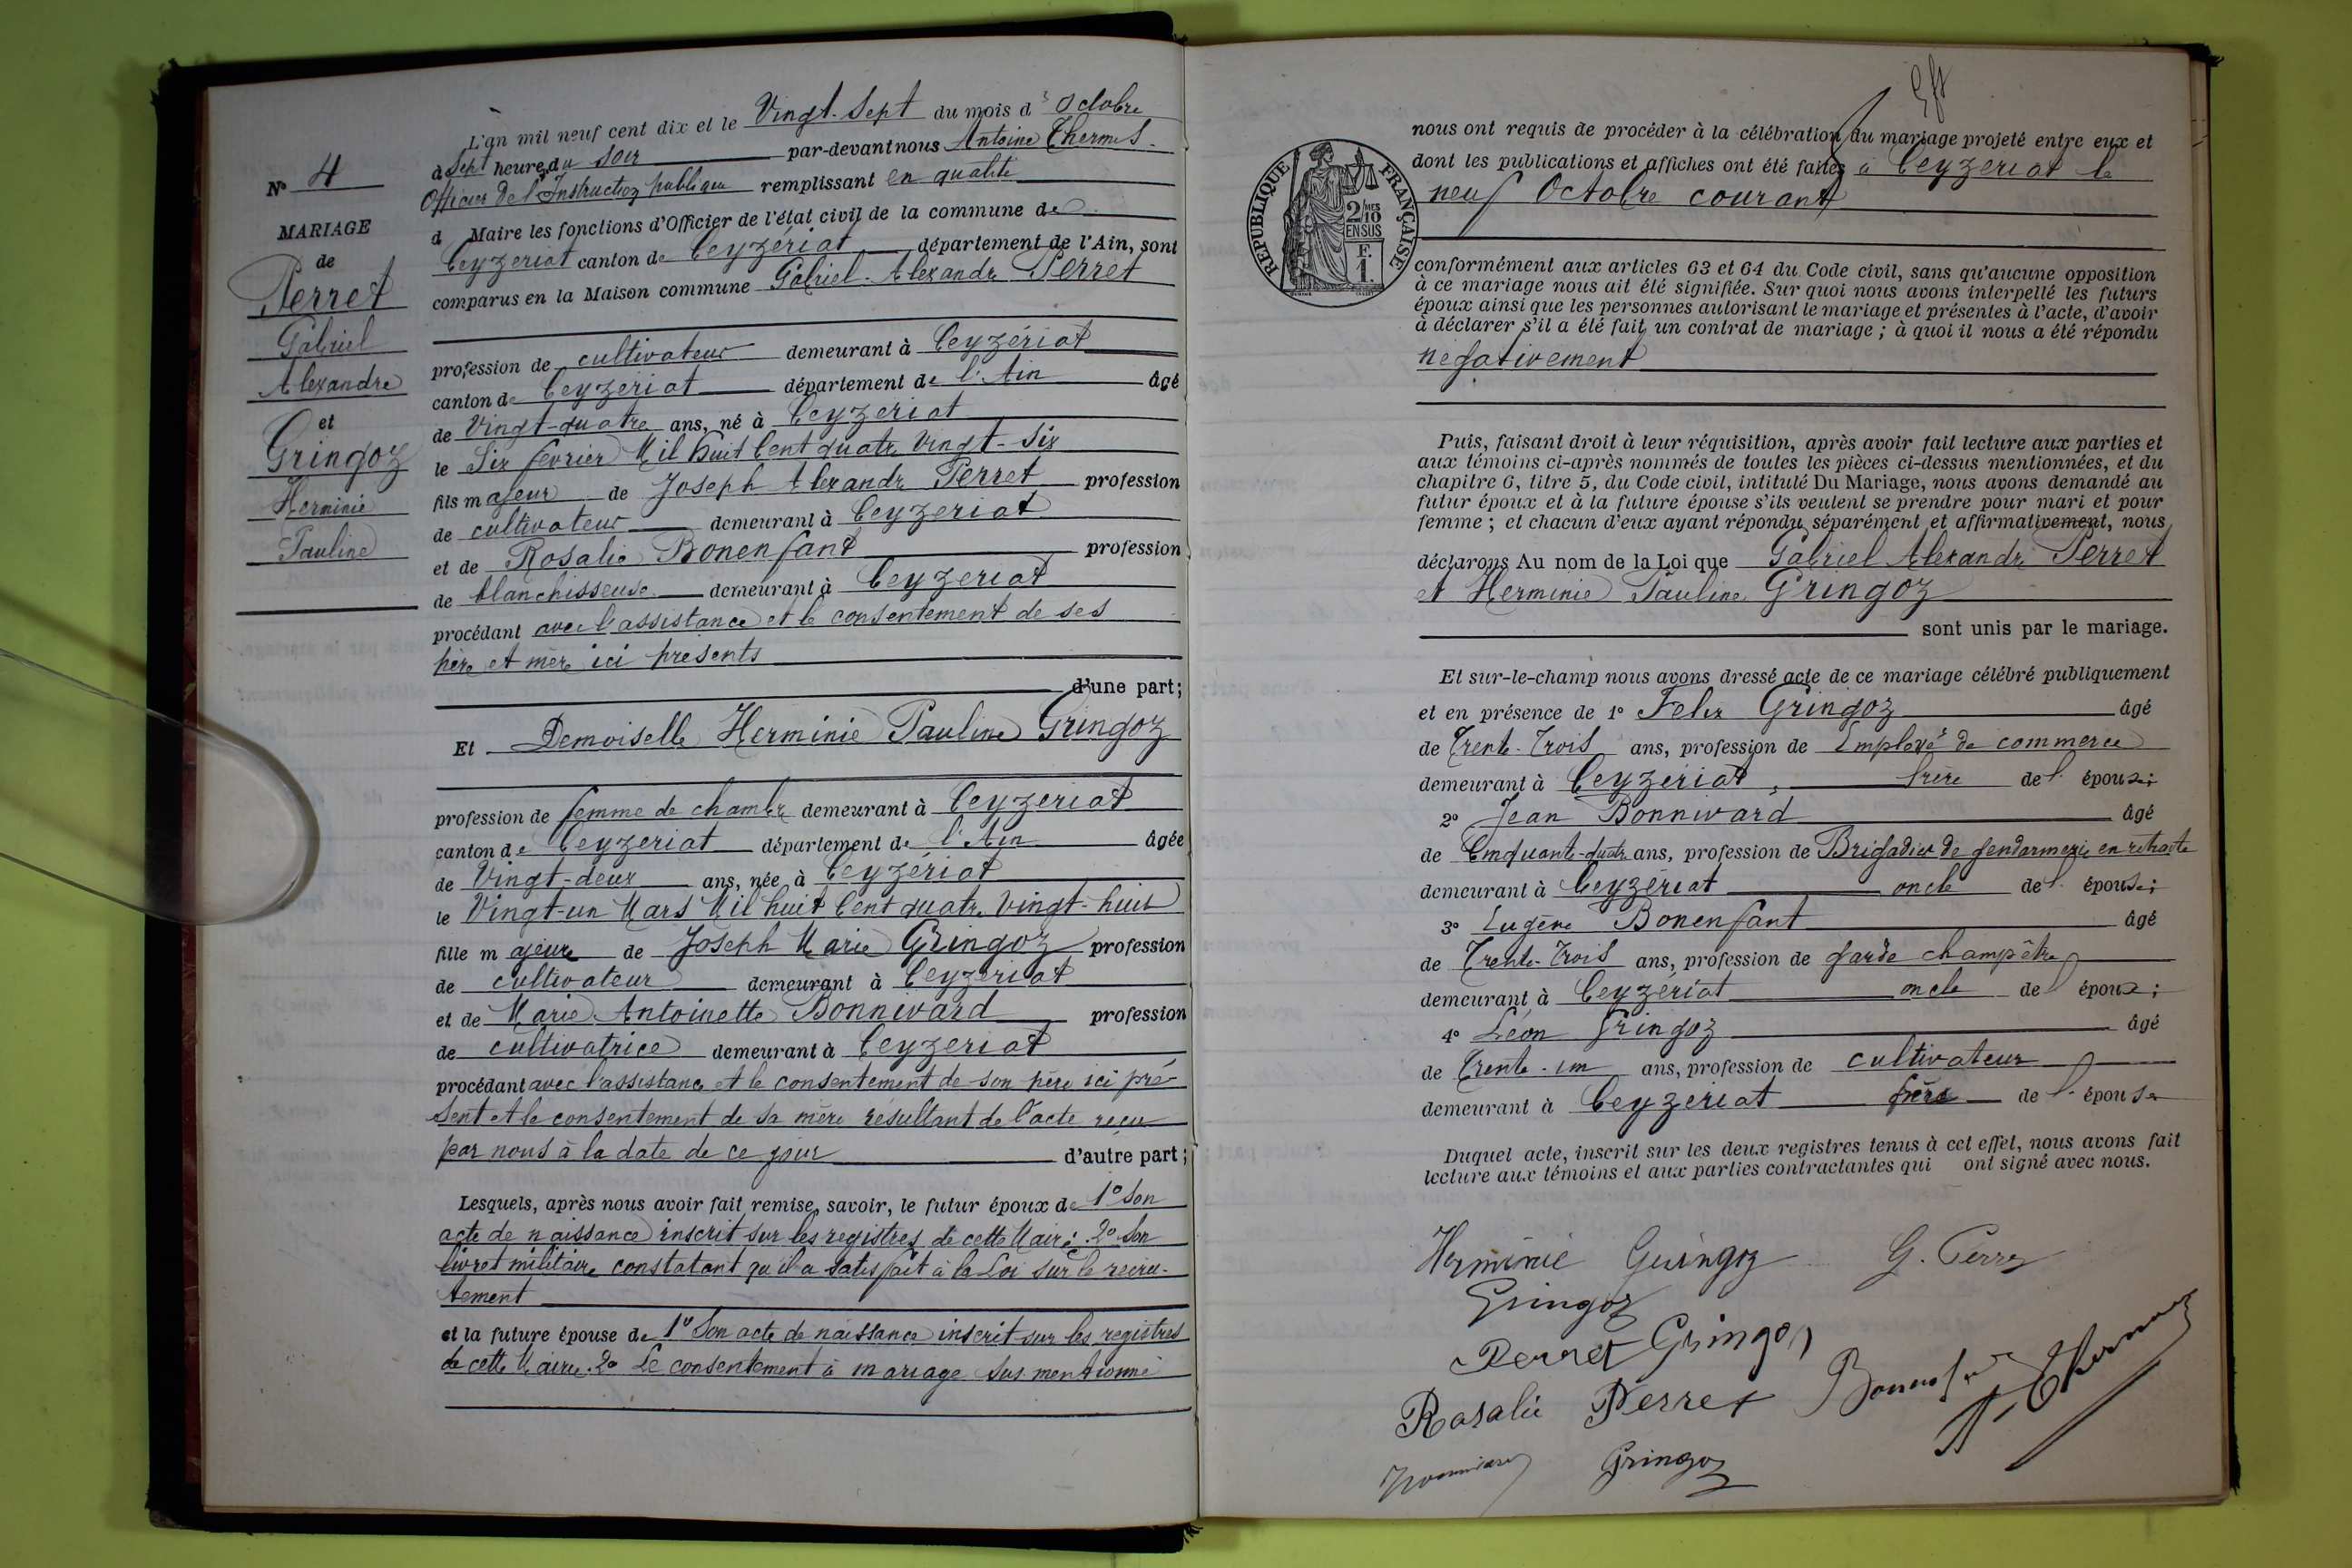 N° 4
MARIAGE
de
Perret
Gabriel
Alexandre
et
Gringoz
Herminie
Pauline
L'an mil neuf cent dix et le Vingt-Sept du mois d'Octobre
à Sept heures du soir par-devant nous Antoine Thermes
Officier de l'Instruction publique remplissant en qualité
d Maire les fonctions d'Officier de l'état civil de la commune de
Ceyzériat canton de Ceyzériat département de l'Ain, sont
comparus en la Maison commune Gabriel Alexandre Perret
profession de cultivateur demeurant à Ceyzériat
canton de Ceyzeriat département de l'Ain âgé
de Vingt-quatre ans, né à Ceyzeriat
le Six fevrier Mil huit Cent quatre vingt-Six
fils majeur de Joseph Alexandre Perret profession
de cultivateur demeurant à Ceyzeriat
et de Rosalie Bonenfant profession
de blanchisseuse demeurant à Ceyzeriat
procédant avec l'assistance et le consentement de ses
père et mère ici présents
d'une part;
Et Demoiselle Herminie Pauline Gringoz
profession de femme de chambre demeurant à Ceyzeriat
canton de Ceyzeriat département de l'Ain âgée
de Vingt-deux ans, née à Ceyzériat
le Vingt-un Mars Mil huit Cent quatre vingt-huit
fille majeure de Joseph Marie Gringoz profession
de cultivateur demeurant à Ceyzeriat
et de Marie Antoinette Bonnivard profession
de cultivatrice demeurant à Ceyzeriat
procédant avec l'assistance et le consentement de son père ici pré-
sent et le consentement de sa mère résultant de l'acte reçu
par nous à la date de ce jour d'autre part;
Lesquels, après nous avoir fait remise, savoir, le futur époux de 1° Son
acte de naissance inscrit sur les registres de cette Mairie. 2° Son
livret militaire constatant qu'il a satisfait à la Loi sur le recru-
tement
et la future épouse de 1° Son acte de naissance inscrit sur les registres
de cette Mairie. 2° Le consentement à mariage sus mentionné
nous ont requis de procéder à la célébration du mariage projeté entre eux et
dont les publications et affiches ont été faites à Ceyzeriat le
neuf Octobre courant
RÉPUBLIQUE FRANÇAISE
2/10 MES
EN SUS
F.
1.
conformément aux articles 63 et 64 du Code civil, sans qu'aucune opposition
à ce mariage nous ait été signifiée. Sur quoi nous avons interpellé les futurs
époux ainsi que les personnes autorisant le mariage et présentes à l'acte, d'avoir
à déclarer s'il a été fait un contrat de mariage; à quoi il nous a été répondu
négativement
Puis, faisant droit à leur réquisition, après avoir fait lecture aux parties et
aux témoins ci-après nommés de toutes les pièces ci-dessus mentionnées, et du
chapitre 6, titre 5, du Code civil, intitulé Du Mariage, nous avons demandé au
futur époux et à la future épouse s'ils veulent se prendre pour mari et pour
femme; et chacun d'eux ayant répondu séparément et affirmativement, nous
déclarons Au nom de la Loi que Gabriel Alexandre Perret
et Herminie Pauline Gringoz
sont unis par le mariage.
Et sur-le-champ nous avons dressé acte de ce mariage célébré publiquement
et en présence de 1° Felix Gringoz âgé
de Trente-Trois ans, profession de Employé de commerce
demeurant à Ceyzériat, frère de l'épouse;
2° Jean Bonnivard âgé
de Cinquante-quatre ans, profession de Brigadier de gendarmerie en retraite
demeurant à Ceyzériat oncle de l'épouse;
3° Eugène Bonenfant âgé
de Trente-Trois ans, profession de garde champêtre
demeurant à Ceyzériat oncle de l'époux;
4° Léon Gringoz âgé
de Trente-un ans, profession de cultivateur
demeurant à Ceyzériat frère de l'épouse
Duquel acte, inscrit sur les deux registres tenus à cet effet, nous avons fait
lecture aux témoins et aux parties contractantes qui ont signé avec nous.
Herminie Gringoz G. Perret
Gringoz
Perret Gringoz
Rosalie Perret Bonenfant A. Thermes
Bonnivard Gringoz